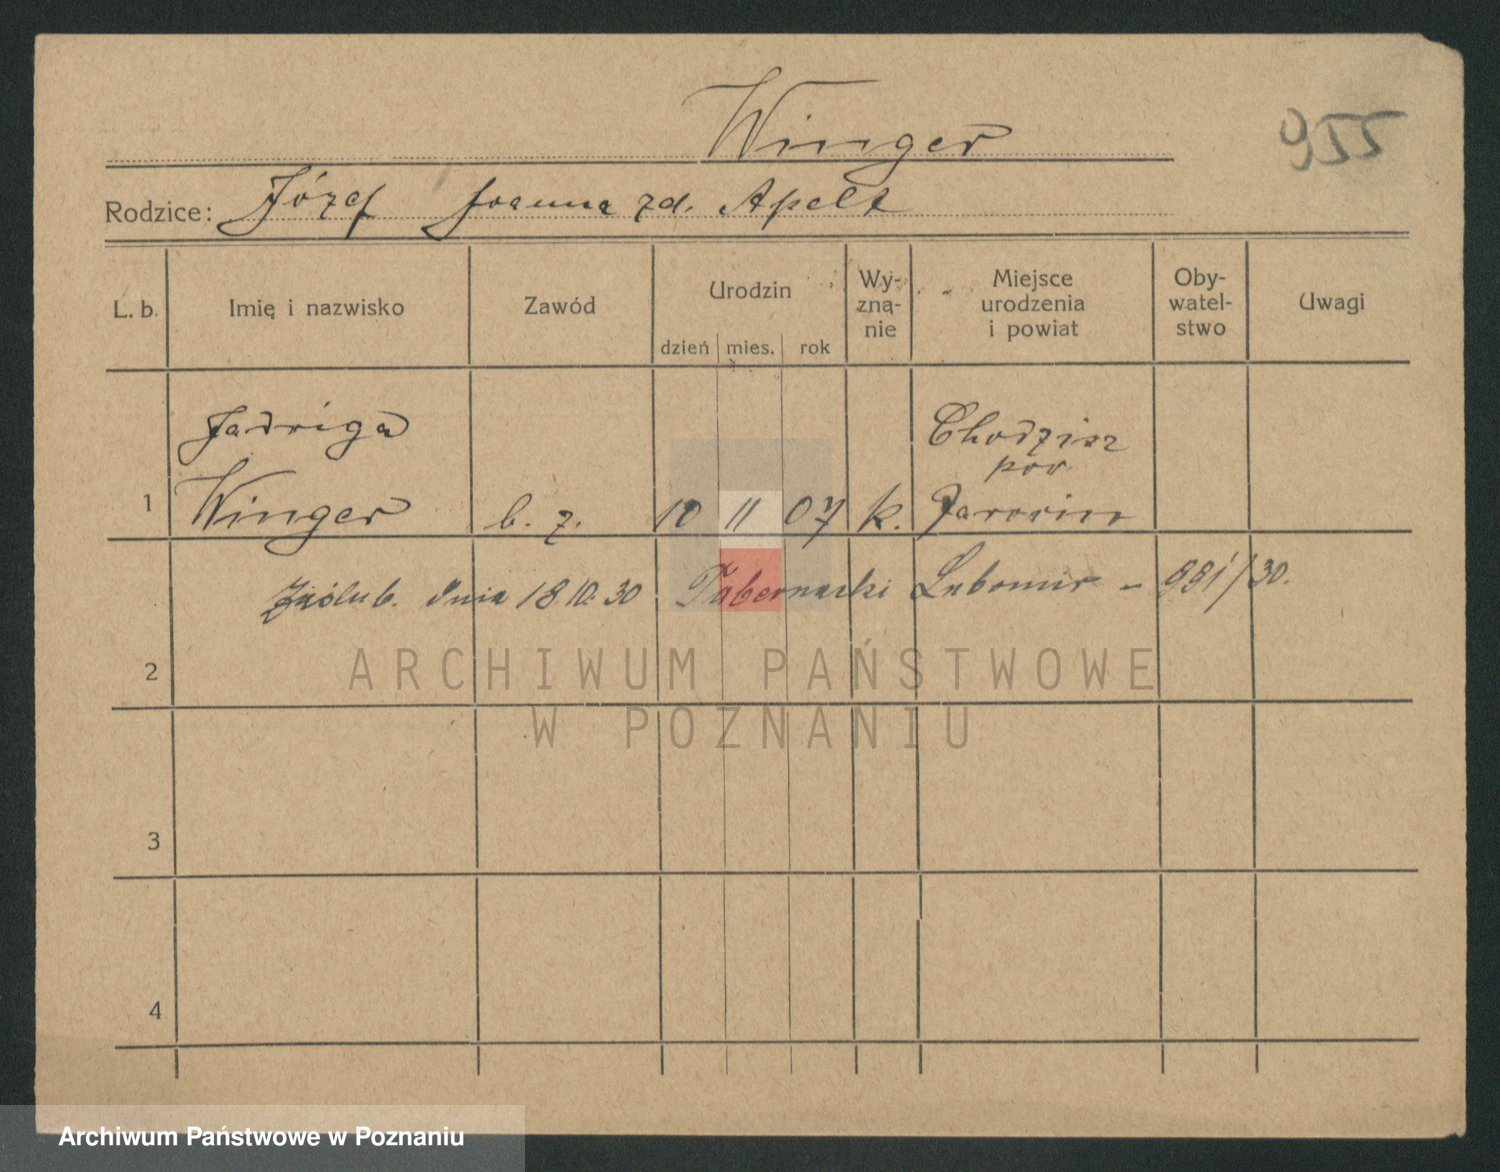 Winger
955
Rodzice: Józef Joanna zd. Apelt
L. b. Imię i nazwisko Zawód Urodzin dzień mies. rok Wy-zna-nie Miejsce urodzenia i powiat Oby-watel-stwo Uwagi
Jadwiga Chodzisz
pow.
1 Winger b. z. 10 11 07 k. Jarocin
Zaślub. dnia 18.10.30 Tabernacki Lubomir – 991/30.
2
ARCHIWUM PAŃSTWOWE
W POZNANIU
3
4
Archiwum Państwowe w Poznaniu